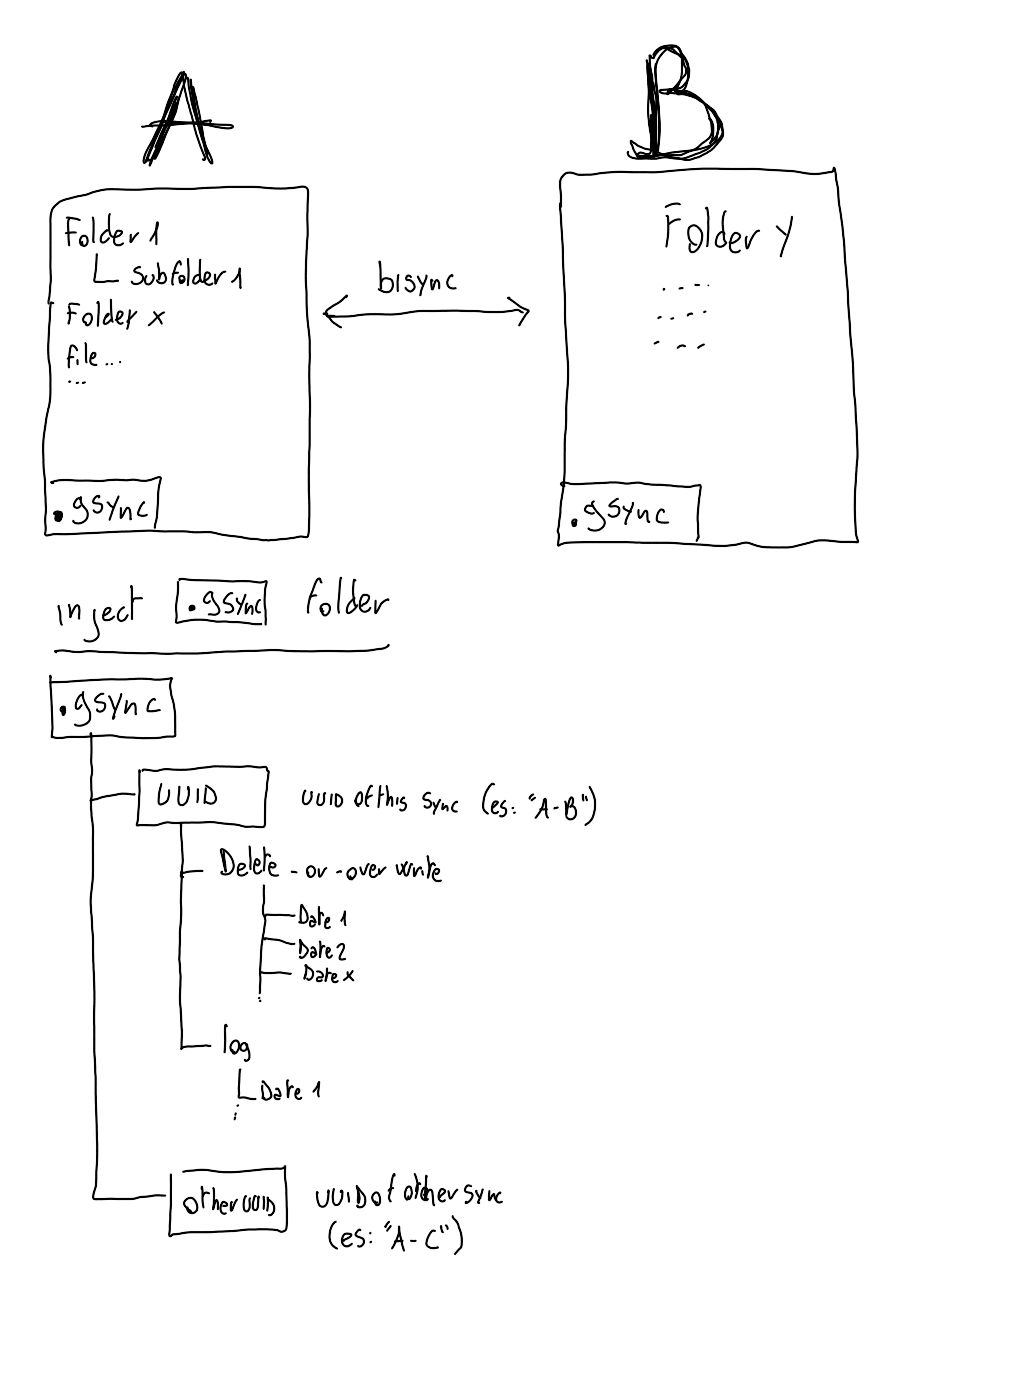 A
B
Folder 1
Subfolder 1
Folder x
file ...
...
.gsync
bisync
Folder y
....
....
...
.gsync
inject .gsync folder
.gsync
UUID
UUID of this sync (es: "A-B")
Delete - or - over write
Date 1
Date 2
Date x
log
Date 1
other UUID
UUID of other sync
(es: "A-C")